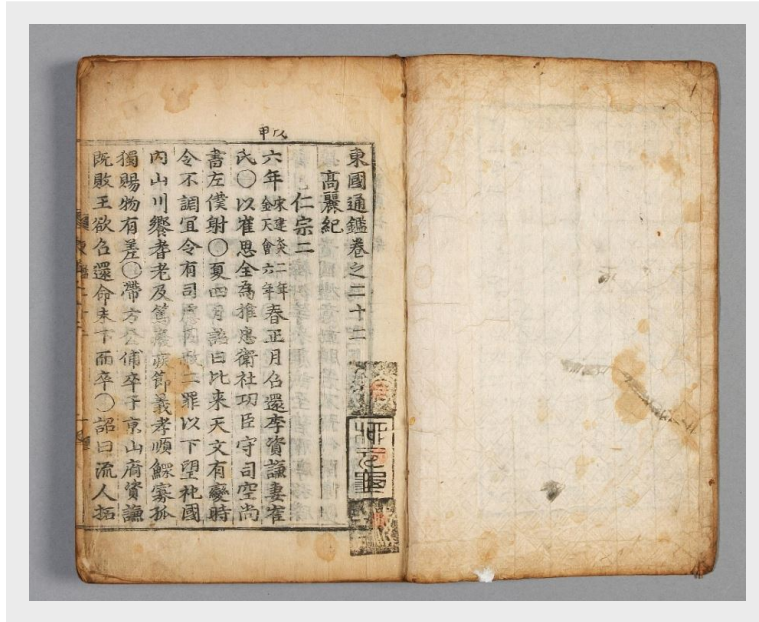 東國通鑑卷之二十二
高麗紀
仁宗二
六年宋建炎二年金天會六年春正月召還李資謙妻崔
氏〇以崔思全為推忠衛社功臣守司空尚
書左僕射〇夏四月詔曰比来天文有變時
令不調冝令有司二罪以下望秩國
内山川饗耆老及篤癈疾節義孝順鰥寡孤
獨賜物有差〇帶方公俌卒于京山府資謙
既敗王欲召還命未下而卒〇詔曰流人拓